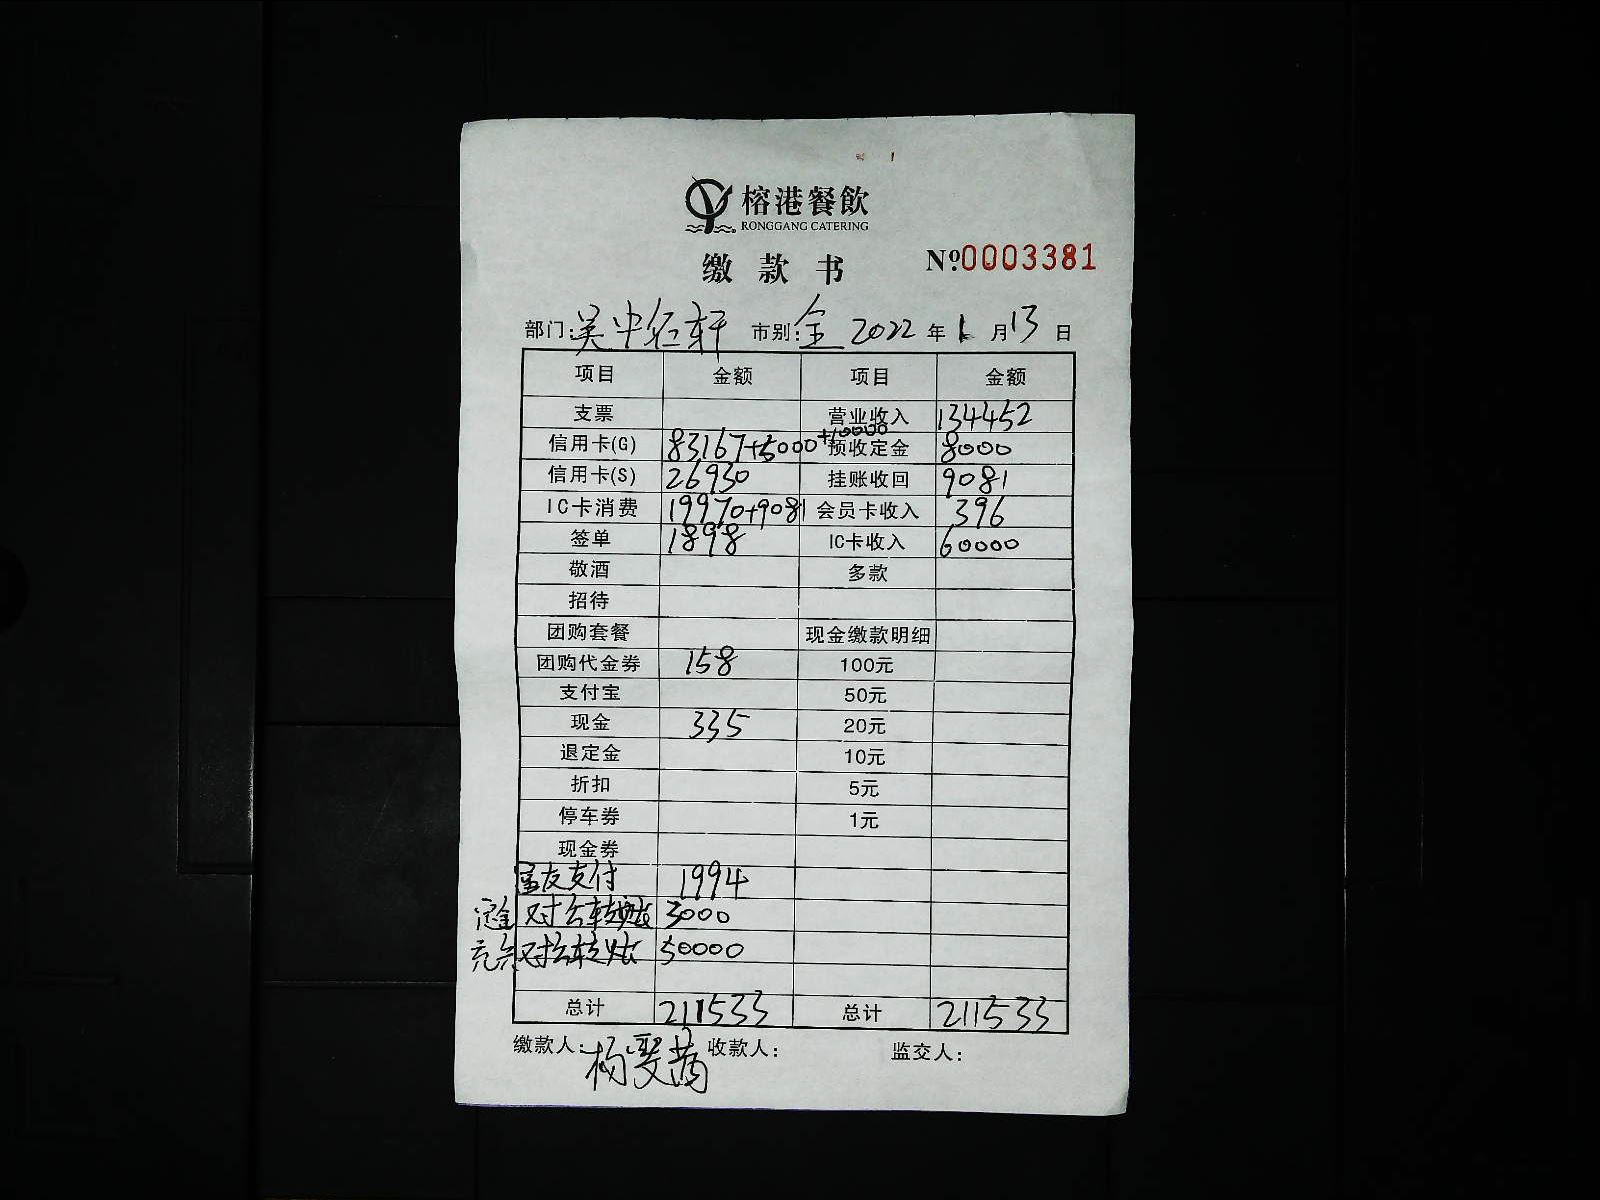 榕港餐飲
RONGGANG CATERING
缴款书
№0003381
部门: 吴中红轩 市别: 全 2022 年 1 月 13 日
项目 金额 项目 金额
支票 营业收入 134452
信用卡(G) 83167+5000+10000 预收定金 8000
信用卡(S) 26930 挂账收回 9081
IC卡消费 19970+9081 会员卡收入 396
签单 1898 IC卡收入 60000
敬酒 多款
招待
团购套餐 现金缴款明细
团购代金券 158 100元
支付宝 50元
现金 335 20元
退定金 10元
折扣 5元
停车券 1元
现金券
友支付 1994
定金 对公转账 3000
充卡 对公转账 50000
总计 211533 总计 211533
缴款人: 杨 收款人: 监交人: